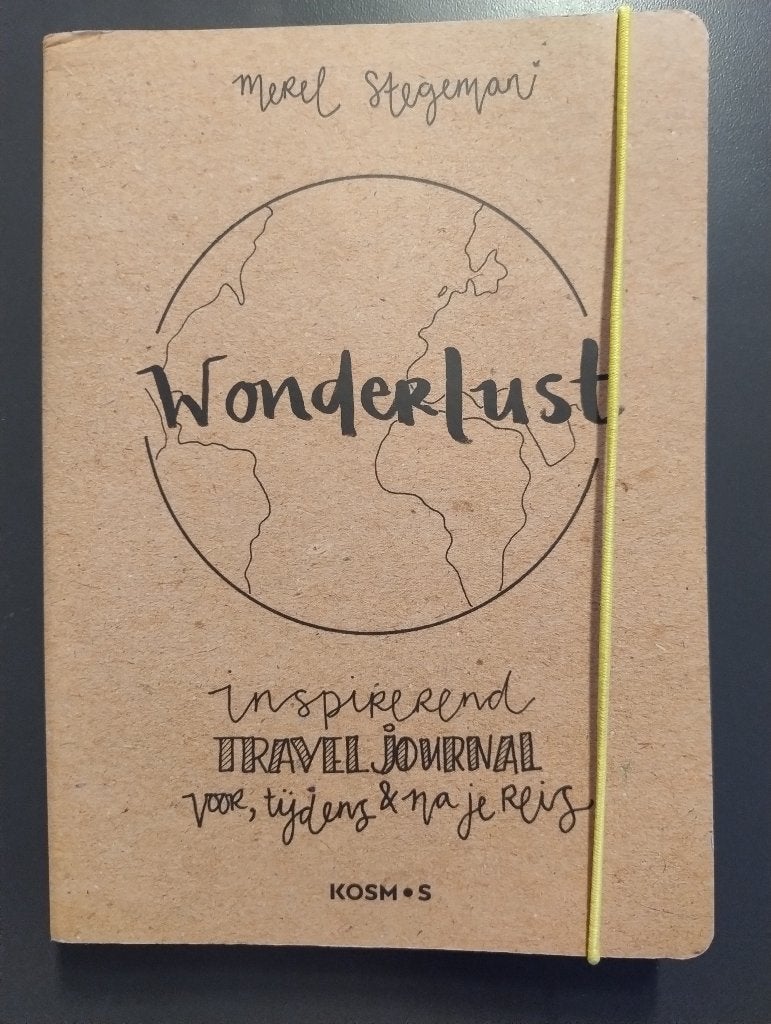 Merel Stegeman
Wonderlust
inspirerend
TRAVEL JOURNAL
voor, tijdens & na je reis
KOSM•S